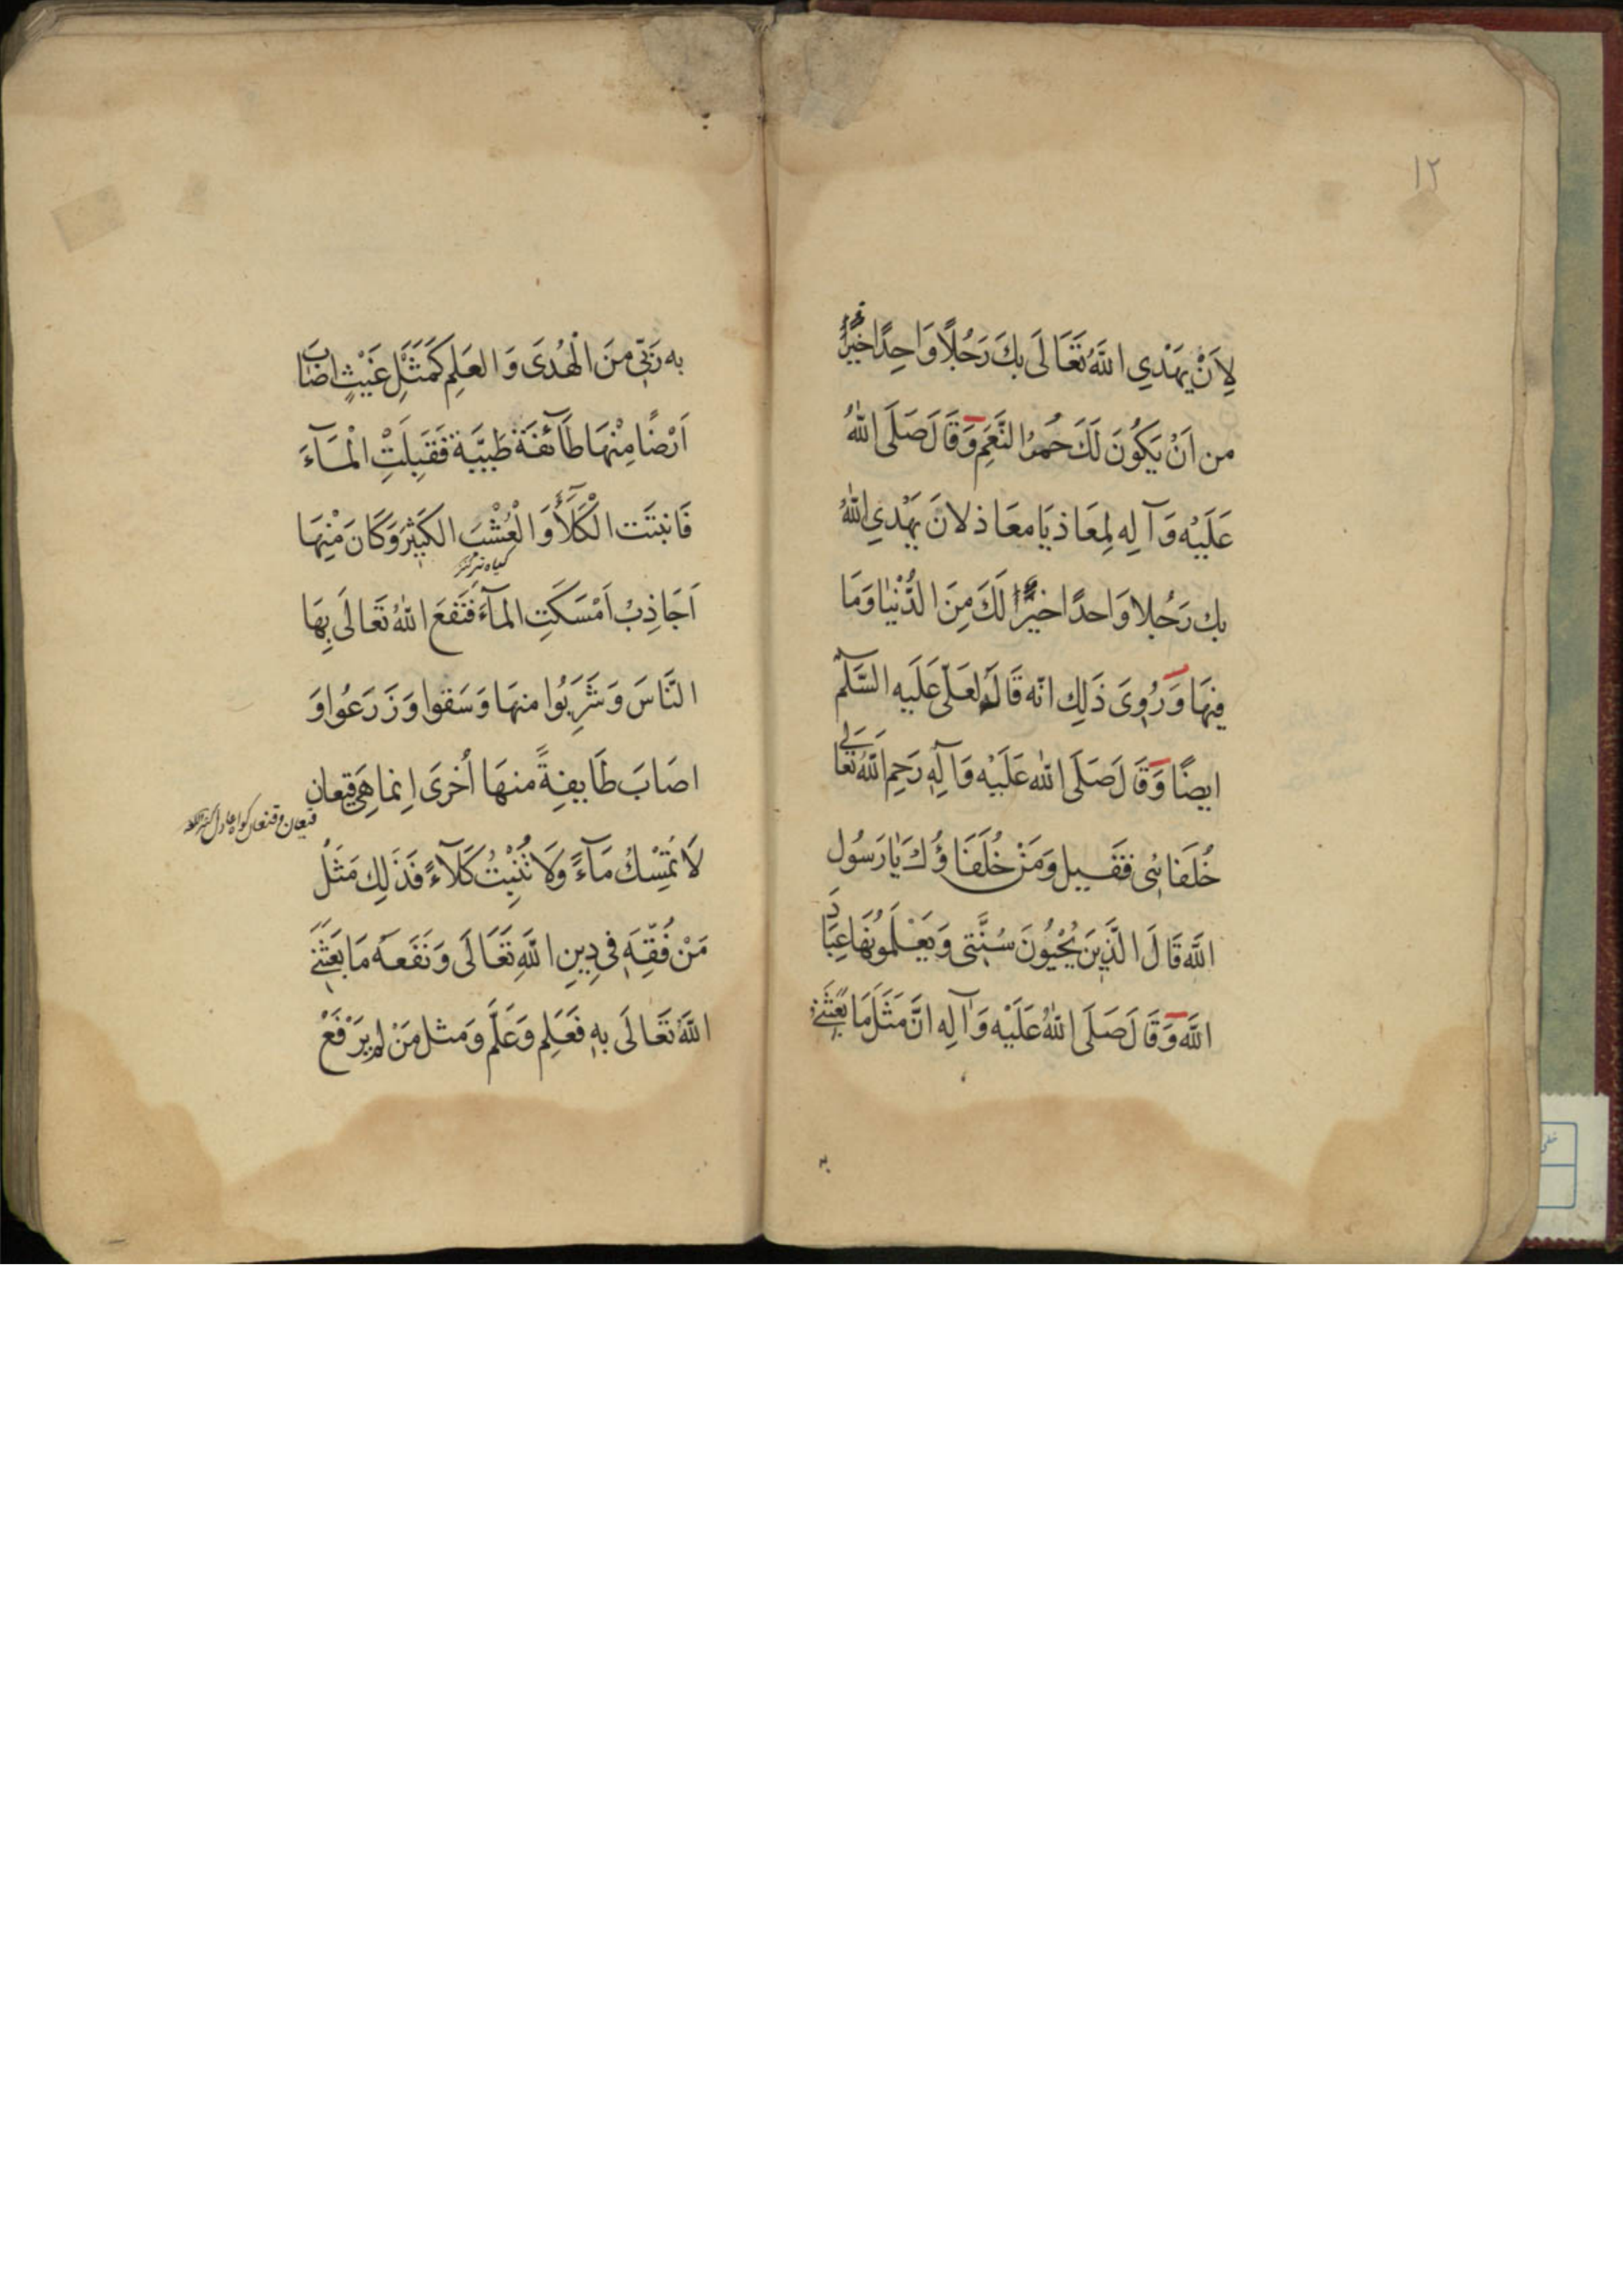 ١٢
لِاَنْ يَهْدِي اللّٰهُ تَعَالَى بِكَ رَجُلًا وَاحِدًا خَيْرٌ
من اَنْ يَكُونَ لَكَ حُمْرُ النَّعَمِ وَقَالَ صَلَّى اللّٰهُ
عَلَيْهِ وَآلِهِ لِمَعَاذ يَا معَاذ لان يَهْدِي اللّٰهُ
بك رَجُلا وَاحدًا خيرٌ لَكَ مِنَ الدُّنْيٰا وَمَا
فِيهَا وَرُوِىَ ذَلِك انّه قَالَهُ لعَلىّ عَلَيه السَّلٰم
ايضًا وَقَالَ صَلَّى اللّٰه عَلَيْهِ وَآلِهِ رَحِمَ اللّٰهُ تَعَالَى
خُلَفَائِى فَقيل وَمَنْ خُلَفَاؤُكَ يَا رَسُول
اللّٰه قَالَ الَّذِينَ يُحْيُونَ سُنَّتِى وَيَعْلَمُونَهَا عِبَادَ
اللّٰه وَقَالَ صَلَّى اللّٰهُ عَلَيْهِ وَآلِهِ انَّ مَثَلَ مَا بَعَثَنِي
به
به رَبِّى مِنَ الْهُدَى وَالعِلمِ كَمَثَلِ غَيْثٍ اصَابَ
اَرْضًا مِنْهَا طَائفَة طَيِّبَة فَقَبِلَتِ الْمَآءَ
فَانبتَت الْكَلَأَ وَالْعُشْبَ الكَثِيرَ وَكَانَ مِنْهَا
اَجَاذِبُ اَمْسَكَتِ المآءَ فَنَفعَ اللّٰهُ تَعَالَى بِهَا
النَّاسَ وَشَرِبُوا منهَا وَسَقوا وَزَرَعُوا وَ
اصَابَ طَايِفَةً منهَا أُخرَى اِنما هِيَ قِيعان
لَا تُمْسِكُ مَآءً وَلَا تُنْبِتُ كَلَآءً فَذَلِك مَثَلُ
مَنْ فَقِّهَ فِى دِينِ اللّٰهِ تَعَالَى وَنَفَعَهُ مَا بَعَثَنِي
اللّٰهُ تَعَالَى بِهِ فَعَلِم وَعَلَّم وَمثل مَنْ لم يَرْفَعْ